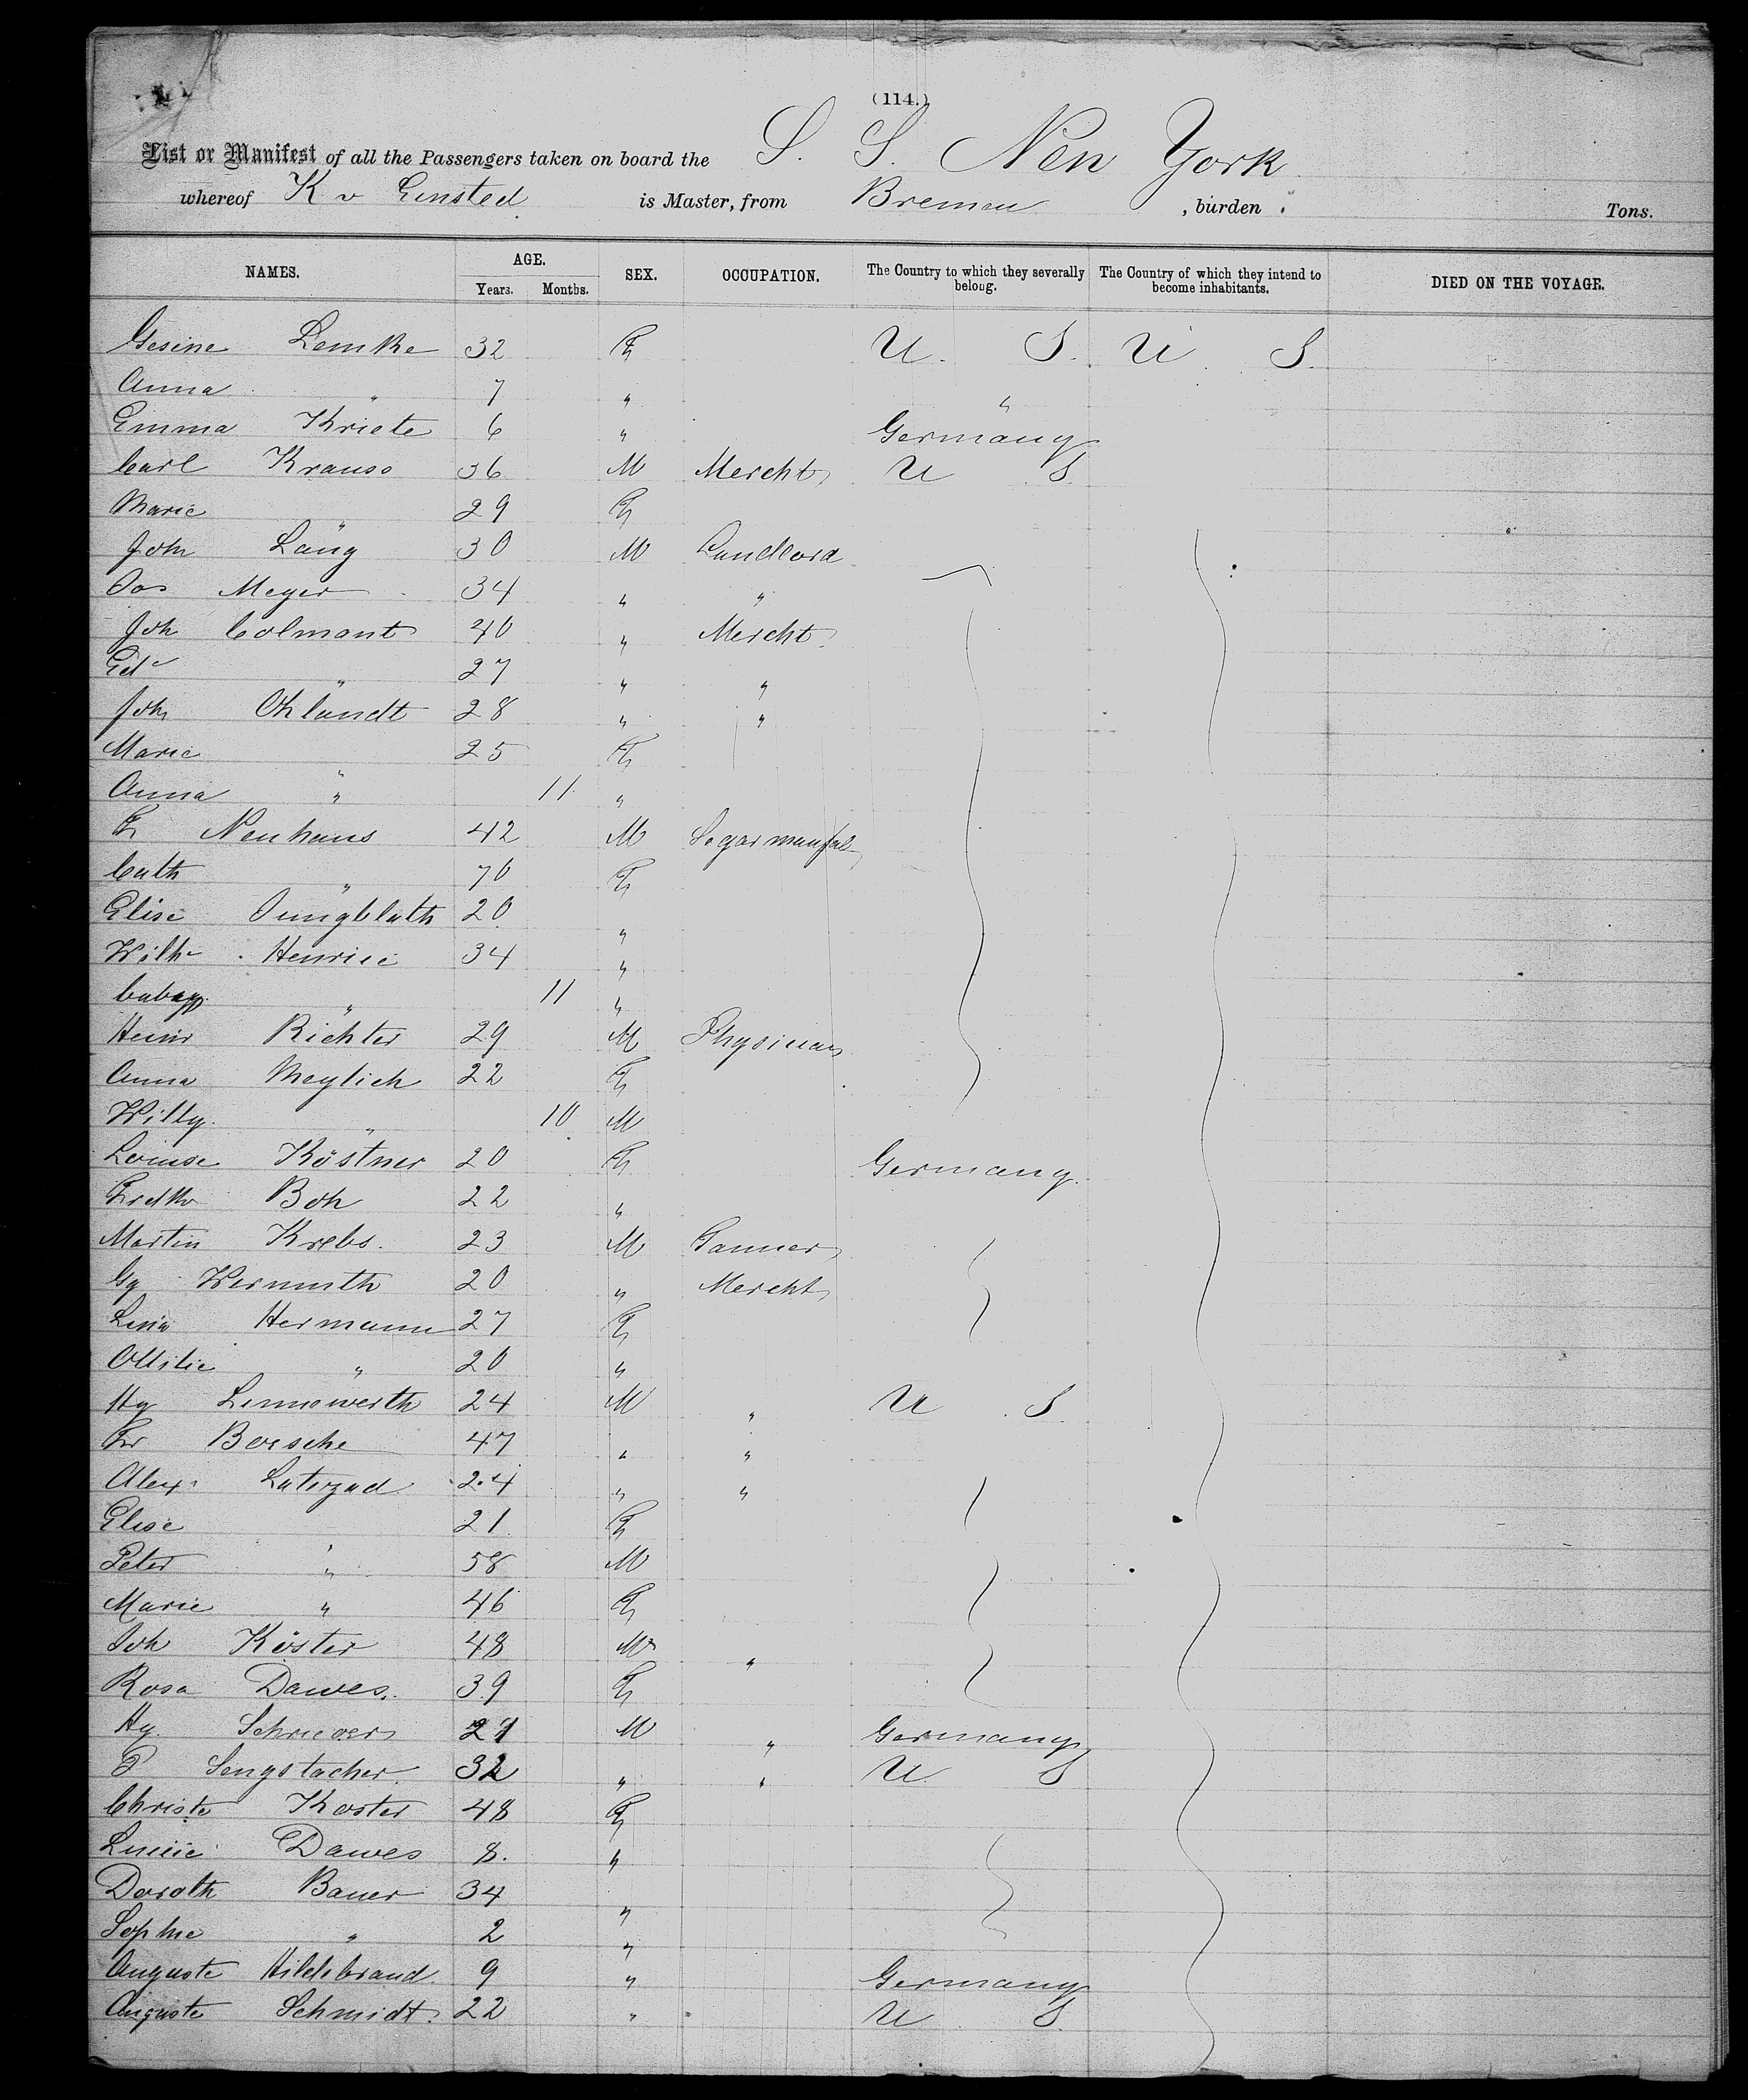 (114.)
List or Manifest of all the Passengers taken on board the S. S. New York
whereof K v Emsted is Master, from Bremen , burden Tons.
NAMES. AGE. SEX. OCCUPATION. The Country to which they severally belong. The Country of which they intend to become inhabitants. DIED ON THE VOYAGE.
Years. Months.
Gesine Lemke 32 F U. S. U S.
Anna " 7 " "
Emma Kriete 6 " Germany
Carl Krause 36 M Mercht U S
Marie " 29 F
Joh Lang 30 M Landlord
Jos Meyer 34 " "
Joh Colmant 40 " Mercht
Ed " 27 " "
Joh Ohlandt 28 " "
Marie " 25 F
Anna " 11 "
F Neuhaus 42 M Segar manfal
Cath " 70 F
Elise Jungbluth 20 "
Wilh Henrici 34 "
" 11 "
Heinr Richter 29 M Physician
Anna Meylich 22 F
Willy " 10 M
Louise Köstner 20 F Germany
Fredke Boh 22 "
Martin Krebs. 23 M Tanner
Gg Wermuth 20 " Mercht
Lina Hermann 27 F
Ottilie " 20 "
Hy Linnewerth 24 M " U S.
Fr Boesche 47 " "
Alex 24 " "
Elise " 21 F
Peter " 58 M
Marie " 46 F
Joh Köster 48 M "
Rosa Dawes. 39 F
Hy Schriever 21 M " Germany
P Sengstacher 32 " " U S
Christe Koster 48 F
Lucie Dawes 8. "
Doroth Bauer 34 "
Sophie " 2 "
Auguste Hildebrand 9 " Germany
Auguste Schmidt. 22 " U S.